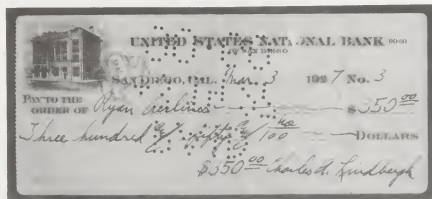 UNITED STATES NATIONAL BANK 90-60
OF SAN DIEGO
SAN DIEGO, CAL., Mar. 3 1927 No. 3
PAY TO THE
ORDER OF Ryan Airlines $350 00
Three hundred & fifty & no/100 DOLLARS
$350 00 Charles A. Lindbergh